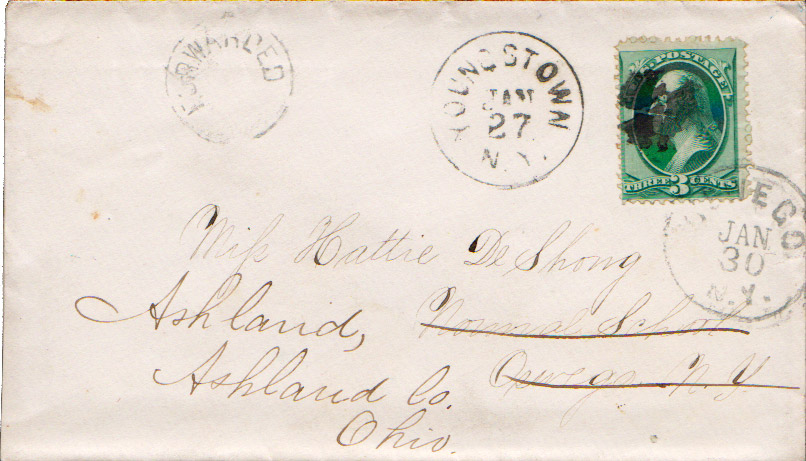 FORWARDED
YOUNGSTOWN
JAN
27
N.Y.
POSTAGE
THREE 3 CENTS
OSWEGO
JAN
30
N.Y.
Miss Hattie De Shong
Ashland, Normal School
Ashland Co. Oswego N.Y.
Ohio.